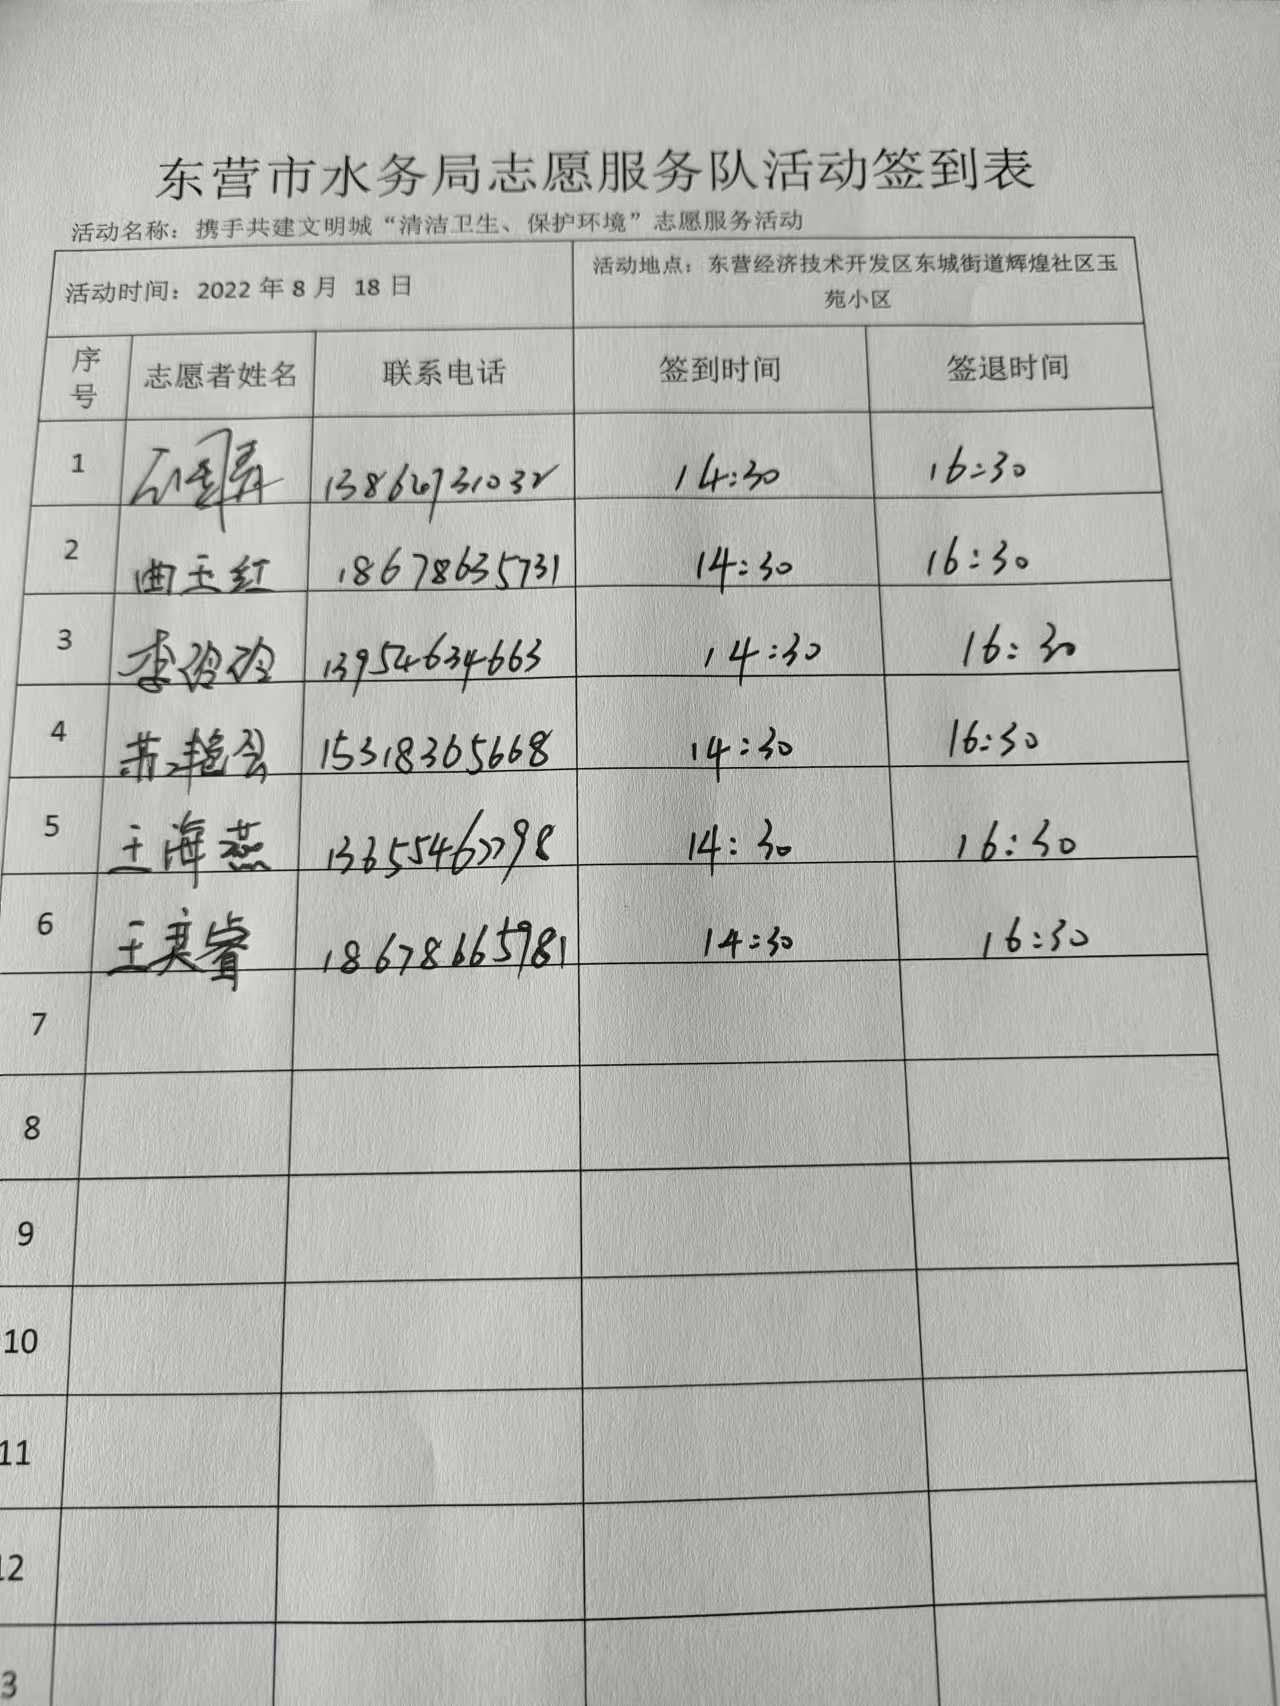 东营市水务局志愿服务队活动签到表
活动名称：携手共建文明城“清洁卫生、保护环境”志愿服务活动
活动时间：2022 年 8 月 18 日
活动地点：东营经济技术开发区东城街道辉煌社区玉
苑小区
序号 志愿者姓名 联系电话 签到时间 签退时间
1 14:30 16:30
2 曲玉红 18678635731 14:30 16:30
3 李玲玲 13954634663 14:30 16:30
4 苏艳会 15318305668 14:30 16:30
5 王海燕 14:30 16:30
6 王奕睿 18678665981 14:30 16:30
7
8
9
10
11
12
3